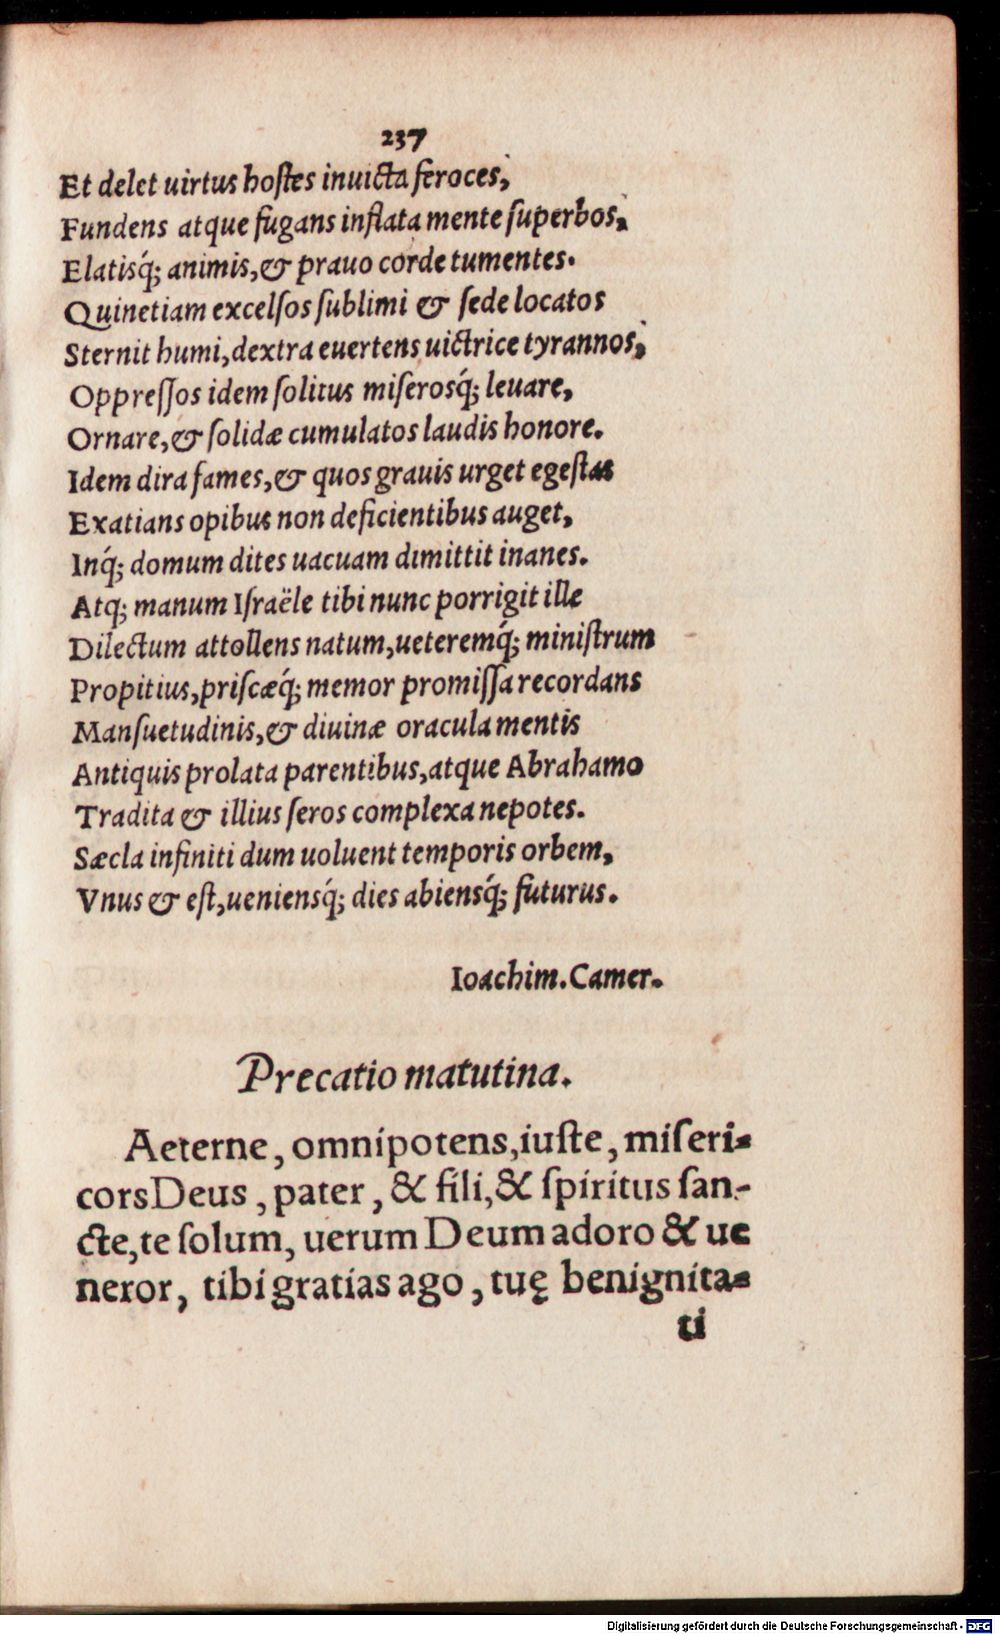 237
Et delet uirtus hoſtes inuicta feroces,
Fundens atque fugans inflata mente ſuperbos,
Elatisq́; animis,& prauo corde tumentes.
Quinetiam excelſos ſublimi & ſede locatos
Sternit humi,dextra euertens uictrice tyrannos,
Oppreſſos idem ſolitus miſerosq́; leuare,
Ornare,& ſolidæ cumulatos laudis honore.
Idem dira fames,& quos grauis urget egeſtas
Exatians opibus non deficientibus auget,
Inq́; domum dites uacuam dimittit inanes.
Atq; manum Iſraële tibi nunc porrigit ille
Dilectum attollens natum,ueteremq́; miniſtrum
Propitius,priſcæq́; memor promiſſa recordans
Manſuetudinis,& diuinæ oracula mentis
Antiquis prolata parentibus,atque Abrahamo
Tradita & illius ſeros complexa nepotes.
Sæcla infiniti dum uoluent temporis orbem,
Vnus & eſt,ueniensq́; dies abiensq́; futurus.
Ioachim.Camer.
Precatio matutina.
Aeterne, omnipotens,iuſte, miſeri-
cors Deus, pater, & fili,& ſpiritus ſan-
cte,te ſolum, uerum Deum adoro & ue
neror, tibi gratias ago, tuę benignita-
ti
Digitalisierung gefördert durch die Deutsche Forschungsgemeinschaft - DFG